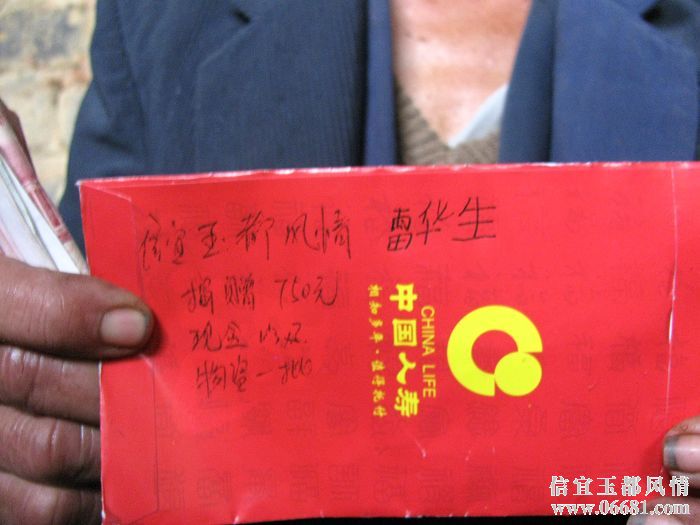 信宜玉都风情 雷华生
捐赠 750元
现金以及
物资一批
CHINA LIFE
中国人寿
相知多年·值得托付
信宜玉都风情
www.06681.com